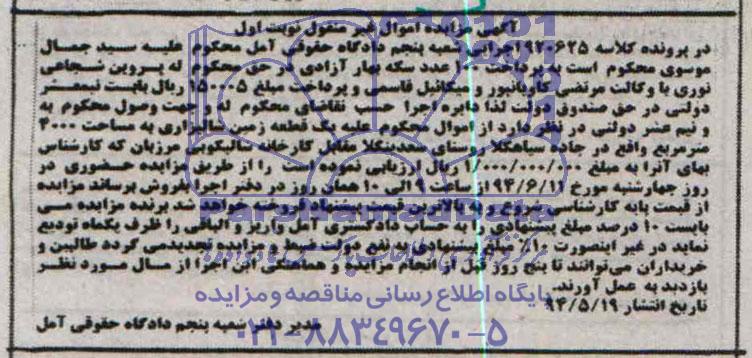 آگهی مزایده اموال غیر منقول نوبت اول
در پرونده کلاسه ۹۲۰۶۲۵ اجرایی شعبه پنجم دادگاه حقوقی آمل محکوم علیه سید جمال
موسوی محکوم است به پرداخت ۱۰۰ عدد سکه بهار آزادی در حق محکوم له پروین شجاعی
نوری با وکالت مرتضی کاویانپور و میکائیل قاسمی و پرداخت مبلغ ریال بابت نیمعشر
دولتی در حق صندوق دولت لذا دایره اجرا حسب تقاضای محکوم له و جهت وصول محکوم به
و نیم عشر دولتی در نظر دارد از اموال محکوم علیه یک قطعه زمین شالیزاری به مساحت ۴۰۰۰
مترمربع واقع در جاده سیاهکلا روستای مقابل کارخانه شالیکوبی مرزبان که کارشناس
بهای آنرا به مبلغ ریال ارزیابی نموده است را از طریق مزایده حضوری در
روز چهارشنبه مورخ ۹۴/۶/۱۱ از ساعت ۹ الی ۱۰ همان روز در دفتر اجرا بفروش برساند مزایده
از قیمت پایه کارشناسی شروع و به بالاترین قیمت پیشنهاد فروخته خواهد شد برنده مزایده می
بایست ۱۰ درصد مبلغ پیشنهادی را به حساب دادگستری آمل واریز و الباقی را ظرف یکماه تودیع
نماید در غیر اینصورت ۱۰٪ مبلغ پیشنهادی به نفع دولت ضبط و مزایده تجدید می گردد طالبین و
خریداران می‌توانند تا پنج روز قبل از انجام مزایده و هماهنگی این اجرا از مال مورد نظر
بازدید به عمل آورند.
تاریخ انتشار ۹۴/۵/۱۹
مدیر دفتر شعبه پنجم دادگاه حقوقی آمل
ParsNamadData
پایگاه اطلاع رسانی مناقصه و مزایده
۰۲۱-۸۸۳۴۹۶۷۰-۵